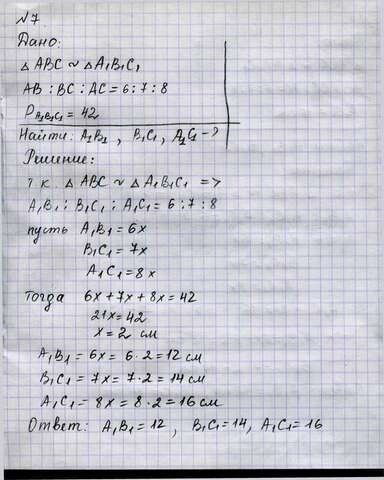 №7
Дано:
△ ABC ~ △ A₁B₁C₁
AB : BC : AC = 6 : 7 : 8
P A₁B₁C₁ = 42
Найти: A₁B₁ , B₁C₁ , A₁C₁ - ?
Решение:
т к. △ ABC ~ △ A₁B₁C₁ =>
A₁B₁ : B₁C₁ : A₁C₁ = 6 : 7 : 8
пусть A₁B₁ = 6x
B₁C₁ = 7x
A₁C₁ = 8x
Тогда 6x + 7x + 8x = 42
21x = 42
x = 2 см
A₁B₁ = 6x = 6 · 2 = 12 см
B₁C₁ = 7x = 7 · 2 = 14 см
A₁C₁ = 8x = 8 · 2 = 16 см
Ответ: A₁B₁ = 12 , B₁C₁ = 14, A₁C₁ = 16